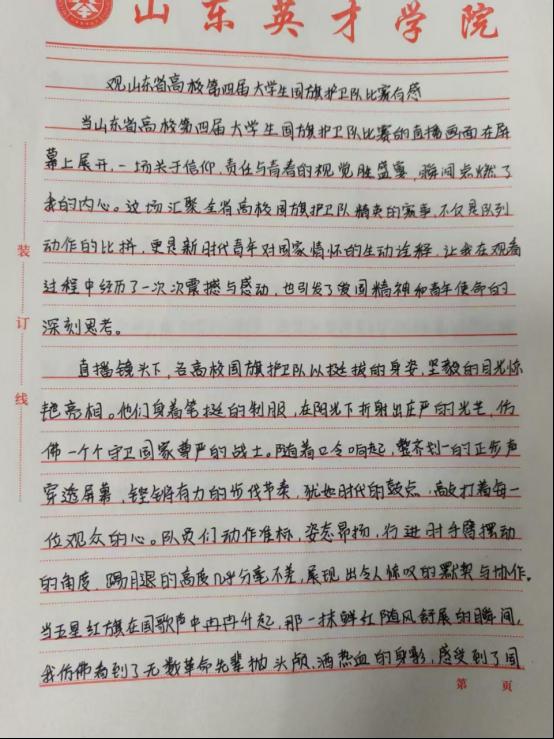 山东英才学院
观山东省高校第四届大学生国旗护卫队比赛有感
当山东省高校第四届大学生国旗护卫队比赛的直播画面在屏
幕上展开,一场关于信仰、责任与青春的视觉胜盛宴,瞬间点燃了
我的内心。这场汇聚全省高校国旗护卫队精英的赛事,不仅是队列
动作的比拼,更是新时代青年对国家情怀的生动诠释,让我在观看
过程中经历了一次次震撼与感动,也引发了爱国精神和青年使命的
深刻思考。
直播镜头下,各高校国旗护卫队以挺拔的身姿,坚毅的目光惊
艳亮相。他们身着笔挺的制服,在阳光下折射出庄严的光芒,仿
佛一个个守卫国家尊严的战士。随着口令响起,整齐划一的正步声
穿透屏幕,铿锵有力的步伐节奏,犹如时代的鼓点,敲打着每一
位观众的心。队员们动作准标,姿态昂扬,行进时手臂摆动
的角度,踢腿的高度几乎分毫不差,展现出令人惊叹的默契与协作。
当五星红旗在国歌声中冉冉升起,那一抹鲜红随风舒展的瞬间,
我仿佛看到了无数革命先辈抛头颅、洒热血的身影,感受到了国
装
订
线
第 页